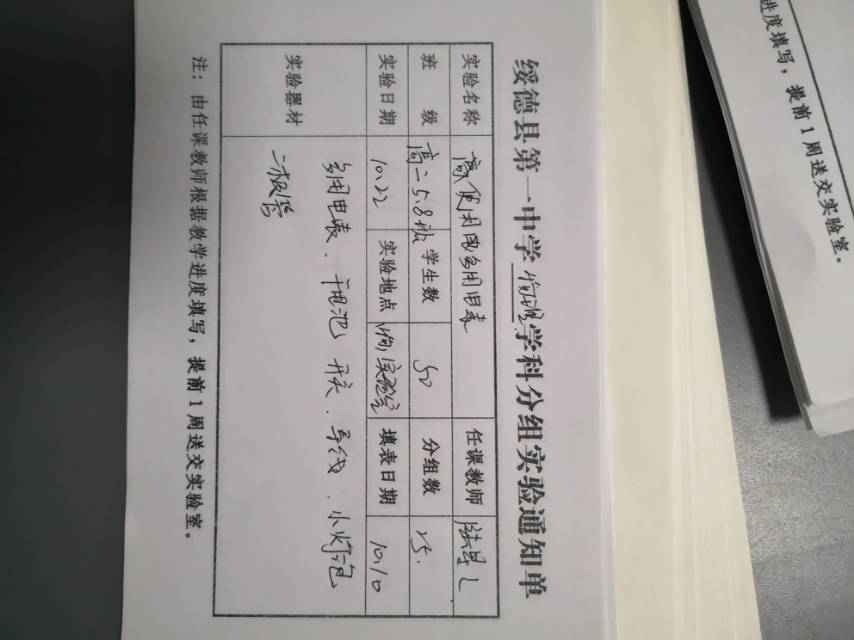 绥德县第一中学物理学科分组实验通知单
实验名称 使用多用电表 任课教师
班 级 高二5.8班 学生数 50 分组数 25.
实验日期 10.22 实验地点 物理实验室 填表日期 10.10
实验器材 多用电表、干电池、开关、导线、小灯泡
二极管
注：由任课教师根据教学进度填写，提前1周送交实验室。
进度填写，提前1周送交实验室。